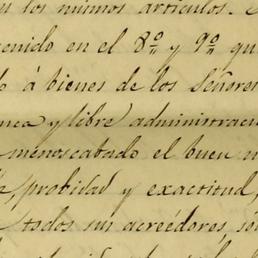 n los mismos artículos.
enido en el 8º y 9º qu
o á bienes de los Señore
nca y libre administraci
menoscabado el buen n
probidad y exactitud,
todos sus acreédores, só